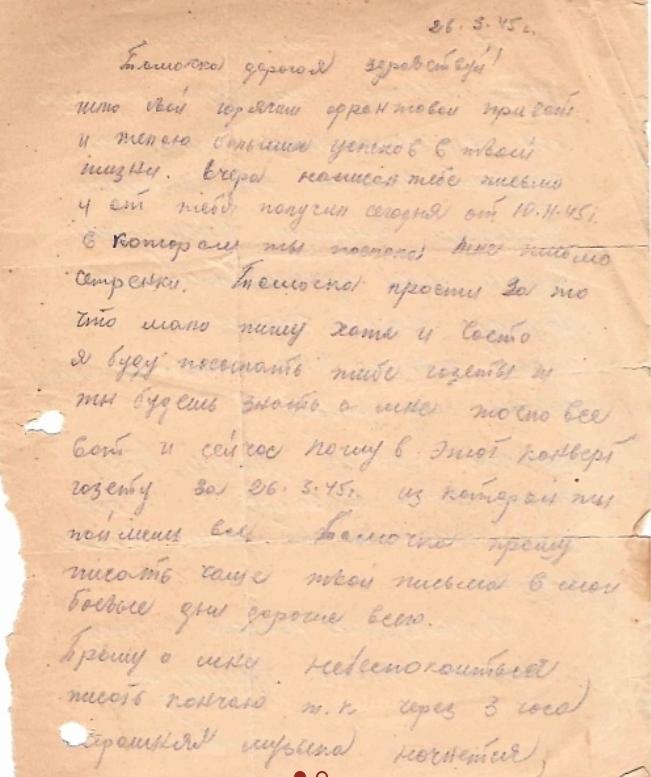 26.3.45 г.
Тамочка дорогая здравствуй!
шлю свой горячий фронтовой привет
и желаю больших успехов в твоей
жизни. Вчера написал тебе письмо
и от тебя получил сегодня от 10.II.45 г.
в котором ты послала мне письмо
сетренки. Тамочка прости за то
что мало пишу хотя и часто
я буду посылать тибе газеты и
ты будешь знать о мне точно все
вот и сейчас в этот конверт
газету за 26.3.45 г. из которой ты
поймешь все. Тамочка прошу
писать чаще твои письма в мои
боевые дни дороже всего.
Прошу о мне небеспокоиться
писать кончаю т.к. через 3 часа
музыка начнется